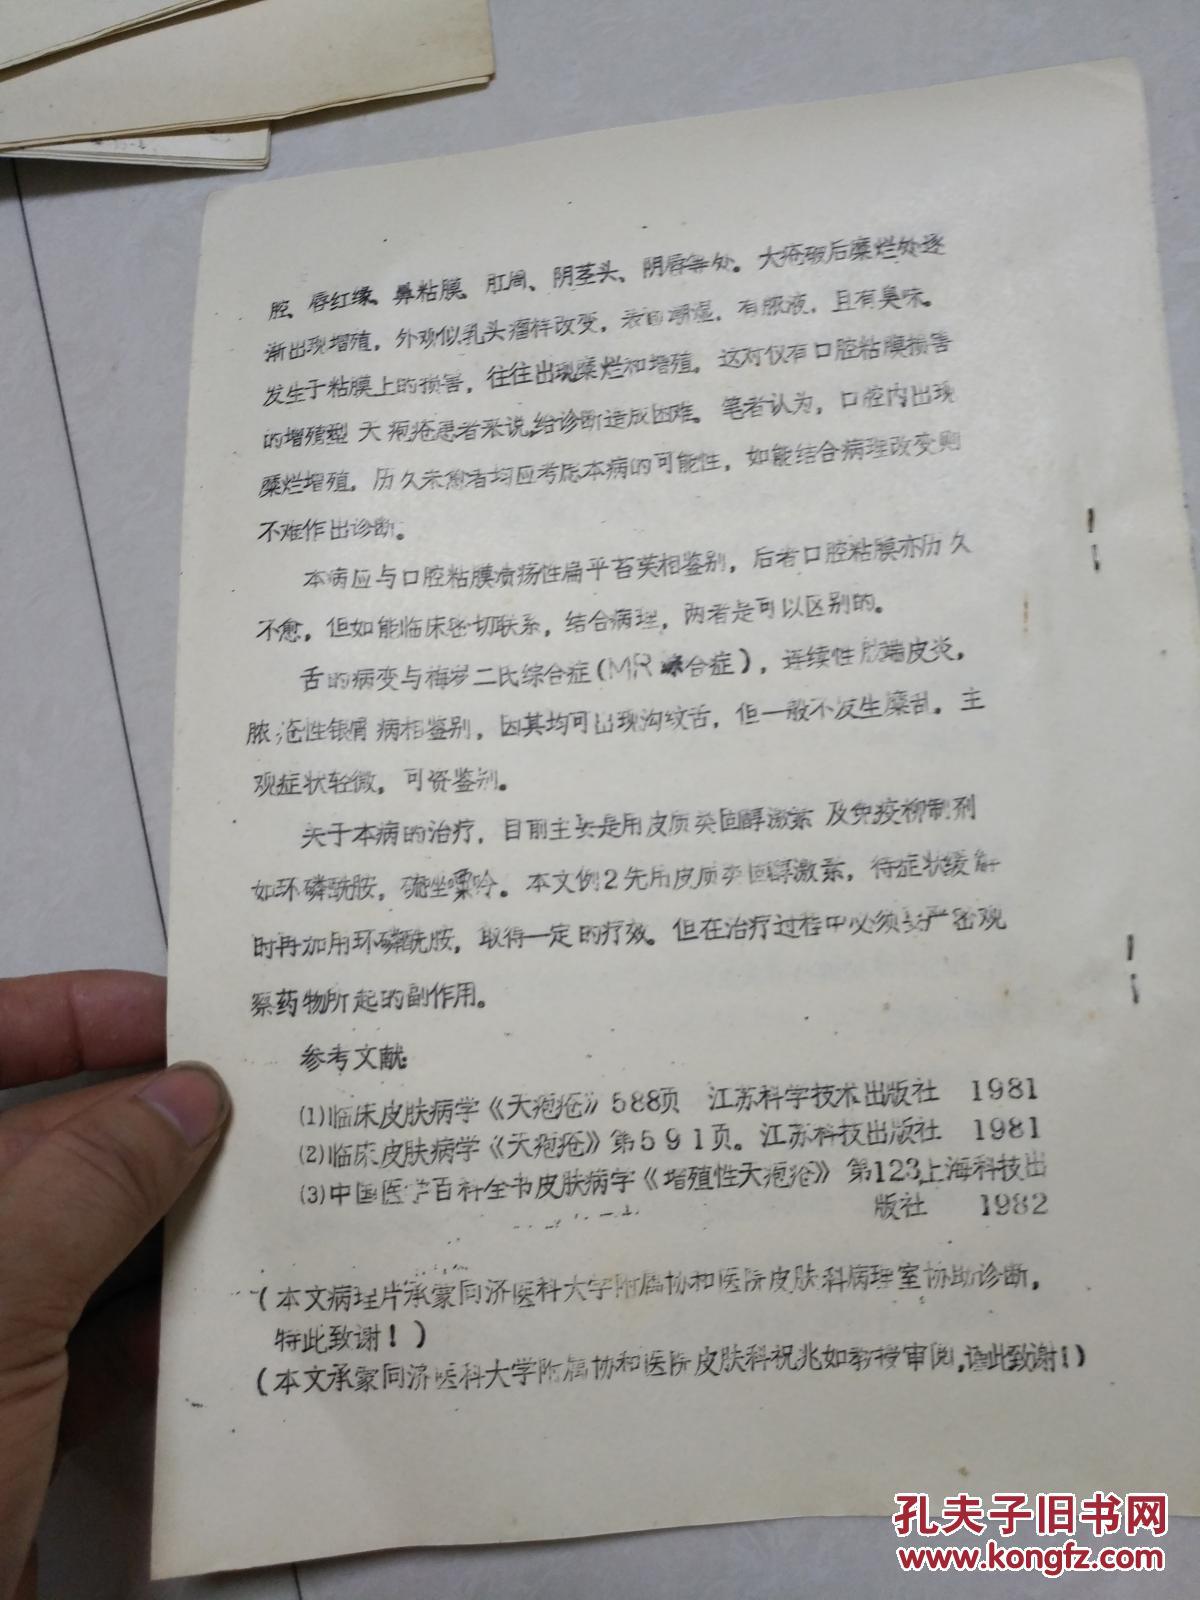 腔、唇红缘、鼻粘膜、肛周、阴茎头、阴唇等处。大疮破后糜烂处逐
渐出现增殖，外观似乳头瘤样改变，表面潮湿，有脓液，且有臭味。
发生于粘膜上的损害，往往出现糜烂和增殖。这对仅有口腔粘膜损害
的增殖型天疱疮患者来说，给诊断造成困难。笔者认为，口腔内出现
糜烂增殖，历久未愈者均应考虑本病的可能性，如能结合病理改变则
不难作出诊断。
本病应与口腔粘膜溃疡性扁平苔芙相鉴别，后者口腔粘膜亦历久
不愈，但如能临床密切联系，结合病理，两者是可以区别的。
舌的病变与梅罗二氏综合症(MR综合症)，连续性肢端皮炎，
脓疮性银屑病相鉴别，因其均可出现沟纹舌，但一般不发生糜乱。主
观症状轻微，可资鉴别。
关于本病的治疗，目前主要是用皮质类固醇激素及免疫抑制剂
如环磷酰胺，硫唑嘌呤。本文例2先用皮质类固醇激素，待症状缓解
时再加用环磷酰胺，取得一定的疗效。但在治疗过程中必须要严密观
察药物所起的副作用。
参考文献：
(1)临床皮肤病学《天疱疮》588页 江苏科学技术出版社 1981
(2)临床皮肤病学《天疱疮》第591页。江苏科技出版社 1981
(3)中国医学百科全书皮肤病学《增殖性天疱疮》第123上海科技出
版社 1982
(本文病理片承蒙同济医科大学附属协和医院皮肤科病理室协助诊断，
特此致谢！)
(本文承蒙同济医科大学附属协和医院皮肤科祝兆如教授审阅，谨此致谢！)
孔夫子旧书网
www.kongfz.com